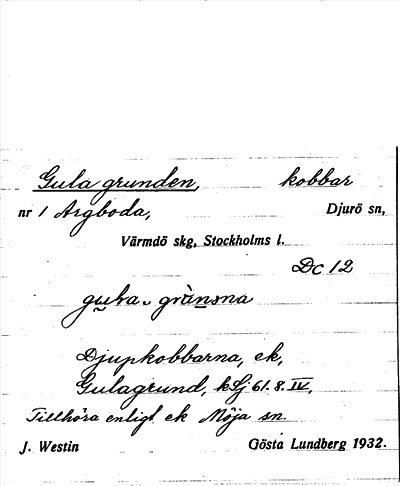 Gula grunden, kobbar
nr 1 Argboda, Djurö sn,
Värmdö skg, Stockholms l.
Dc 12
gu̯la gràn̲sna
Djupkobbarna, ek,
Gulagrund, kSj 61.8.IV,
Tillhöra enligt ek Möja sn.
J. Westin Gösta Lundberg 1932.